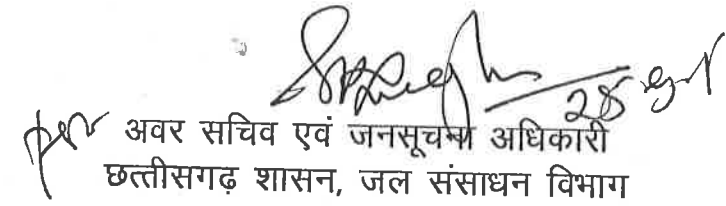 अवर सचिव एवं जनसूचना अधिकारी
छत्तीसगढ़ शासन, जल संसाधन विभाग